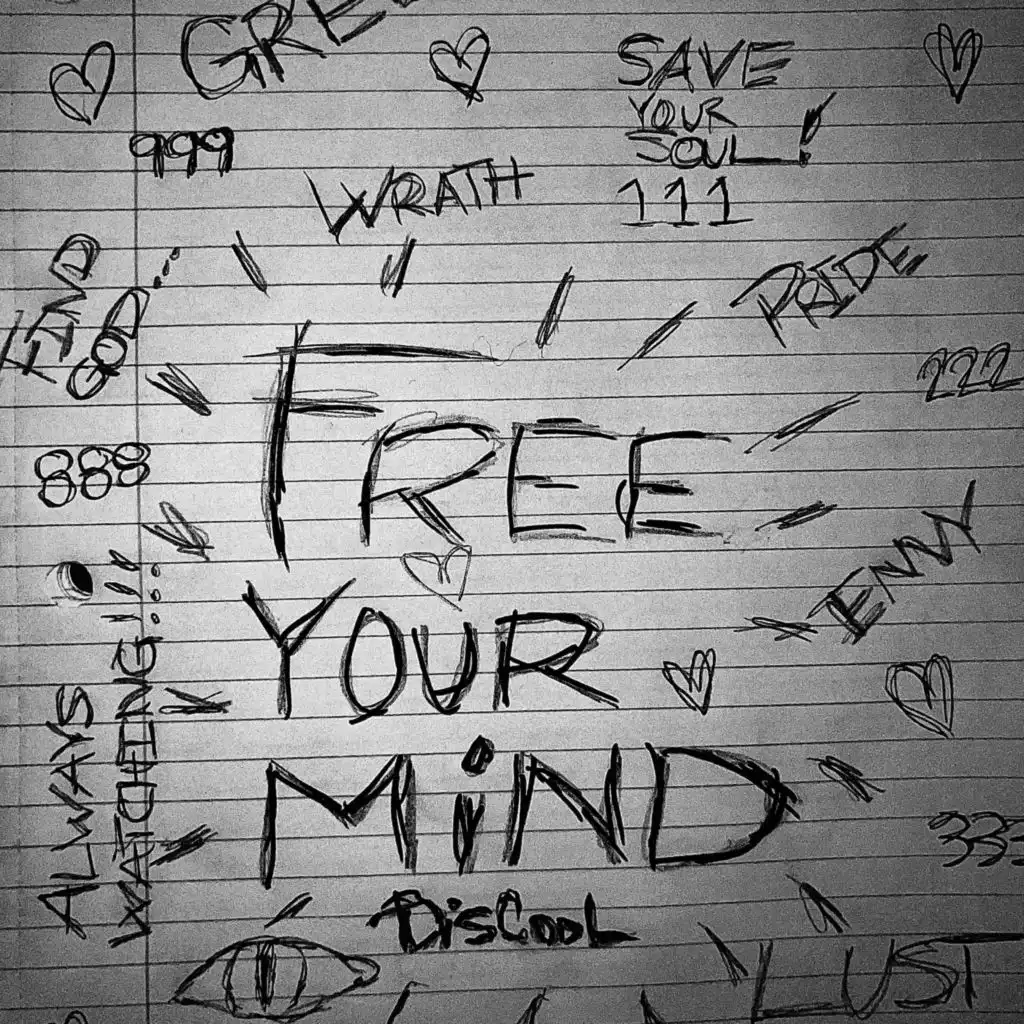 GRE
SAVE
YOUR
SOUL!
111
999
WRATH
PRIDE
FIND
GOD...
222
FREE
888
ENVY
YOUR
ALWAYS
WATCHING!!!...
MiND
333
DisCooL
LUST